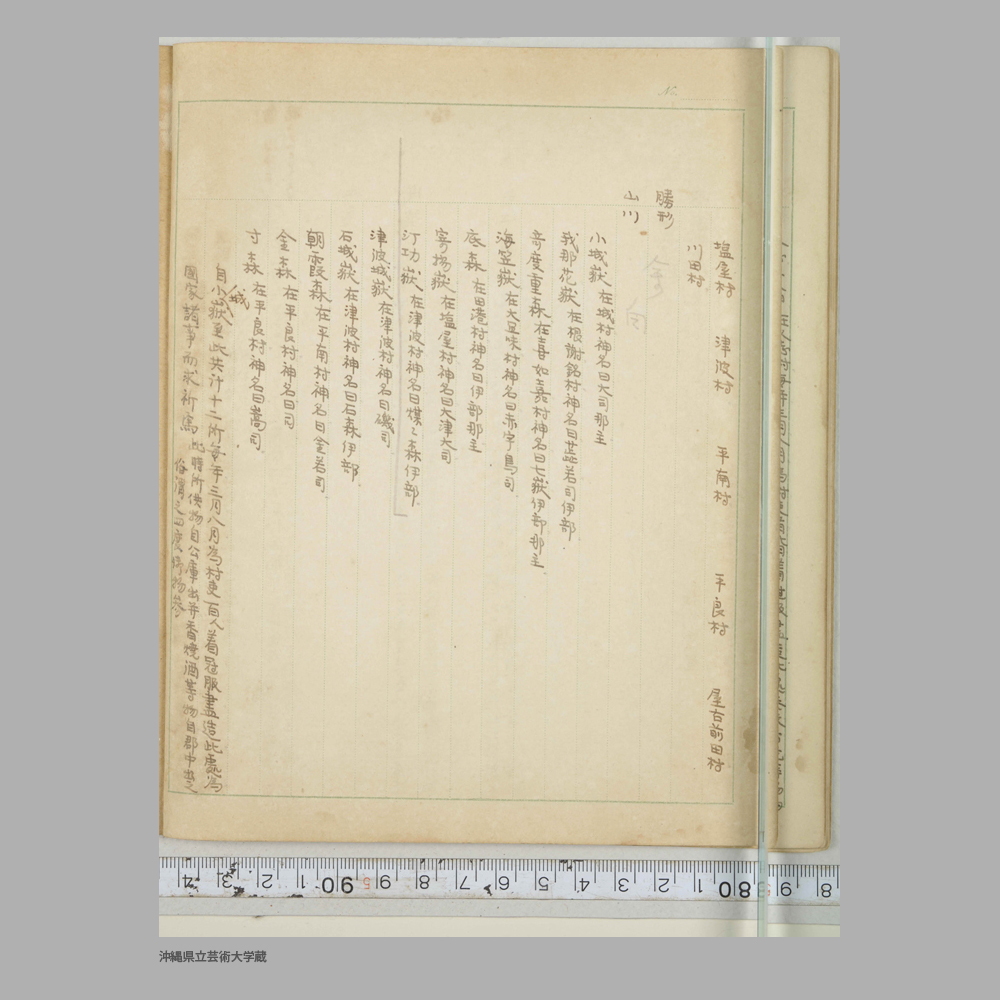 塩屋村 津波村 平南村 平良村 屋古前田村
川田村
勝形
山川
小城嶽 在城村神名曰大司那主
我那花嶽 在根謝銘村神名曰若司伊部
喜度重森 在喜如嘉村神名曰七嶽伊部那主
海笠嶽 在大宜味村神名曰赤字鳥司
底森 在田港村神名曰伊部那主
寄揚嶽 在塩屋村神名曰大津大司
汀功嶽 在津波村神名曰煤々森伊部
津波城嶽 在津波村神名曰磯司
石城嶽 在津波村神名曰石森伊部
朝霞森 在平南村神名曰金若司
金森 在平良村神名曰司
寸森 在平良村神名曰嵩司
自小城嶽至此共計十二所毎年三月八月為村吏百人着冠服盡造此處為
國家諸事而求祈焉 此時所供物自公庫出并香焼酒等物自郡中出之
俗謂之四度御物参
No.
8 9 80 1 2 3 4 5 6 7 8 9 90 1 2 3 4
沖縄県立芸術大学蔵